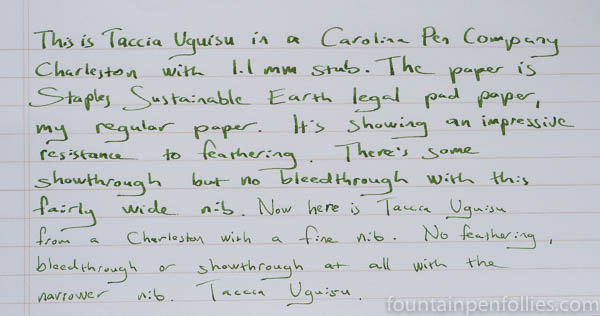 This is Taccia Uguisu in a Carolina Pen Company
Charleston with 1.1 mm stub. The paper is
Staples Sustainable Earth legal pad paper,
my regular paper. It's showing an impressive
resistance to feathering. There's some
showthrough but no bleedthrough with this
fairly wide nib. Now here is Taccia Uguisu
from a Charleston with a fine nib. No feathering,
bleedthrough or showthrough at all with the
narrower nib. Taccia Uguisu.
fountainpenfollies.com